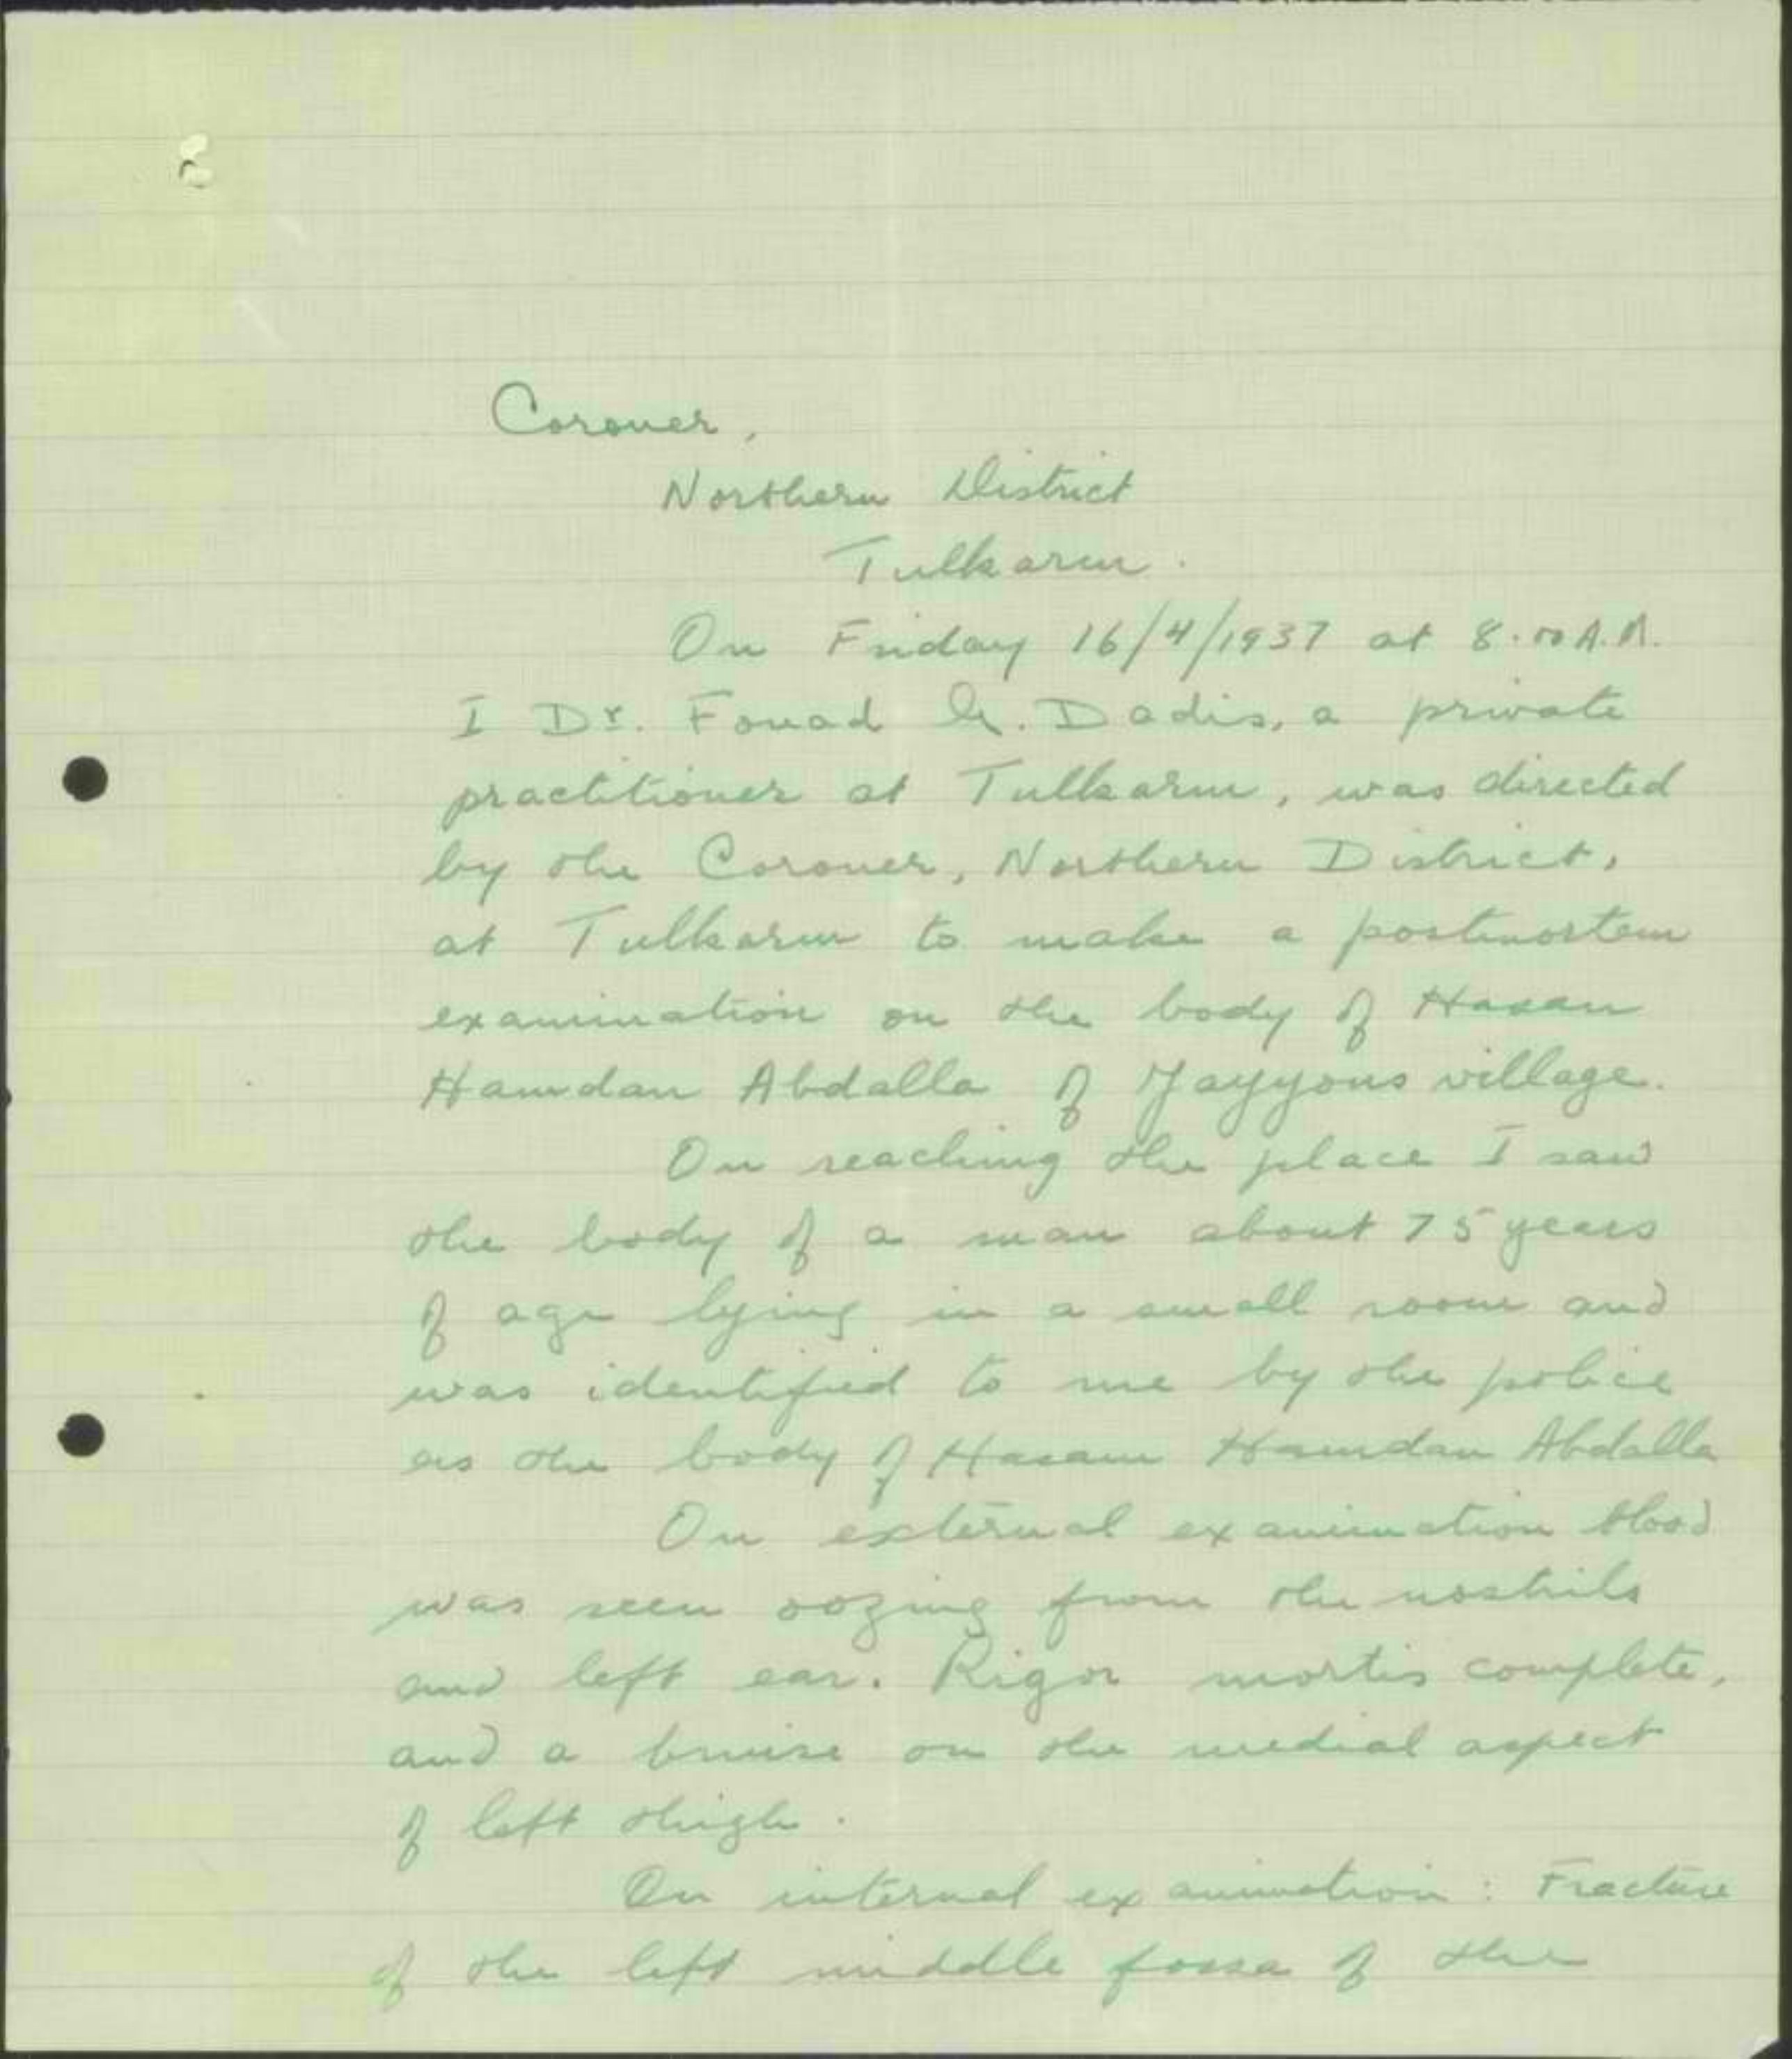 Coroner,
Northern District
Tulkarm.
On Friday 16/4/1937 at 8.00 A.M.
I Dr. Fouad G. Dadis, a private
practitioner at Tulkarm, was directed
by the Coroner, Northern District,
at Tulkarm to make a postmortem
examination on the body of Hasan
Hamdan Abdalla of Jayyous village.
On reaching the place I saw
the body of a man about 75 years
of age lying in a small room and
was identified to me by the police
as the body of Hasan Hamdan Abdalla
On external examination blood
was seen oozing from the nostrils
and left ear. Rigor mortis complete,
and a bruise on the medial aspect
of left thigh.
On internal examination: Fracture
of the left middle fossa of the